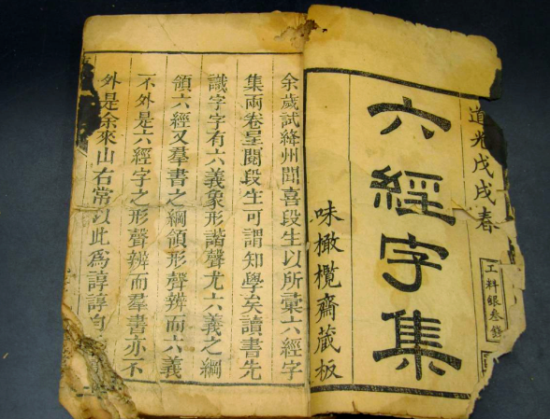 道光戊戌春
工料銀叁錢
六經字集
味橄欖齋藏板
余歲試絳州聞喜段生以所彙六經字
集兩卷呈閱段生可謂知學矣讀書先
識字字有六義象形諧聲尤六義之綱
領六經又羣書之綱領形聲辨而六義
不外是六經字之形聲辨而羣書亦不
外是余來山右常以此為諄諄